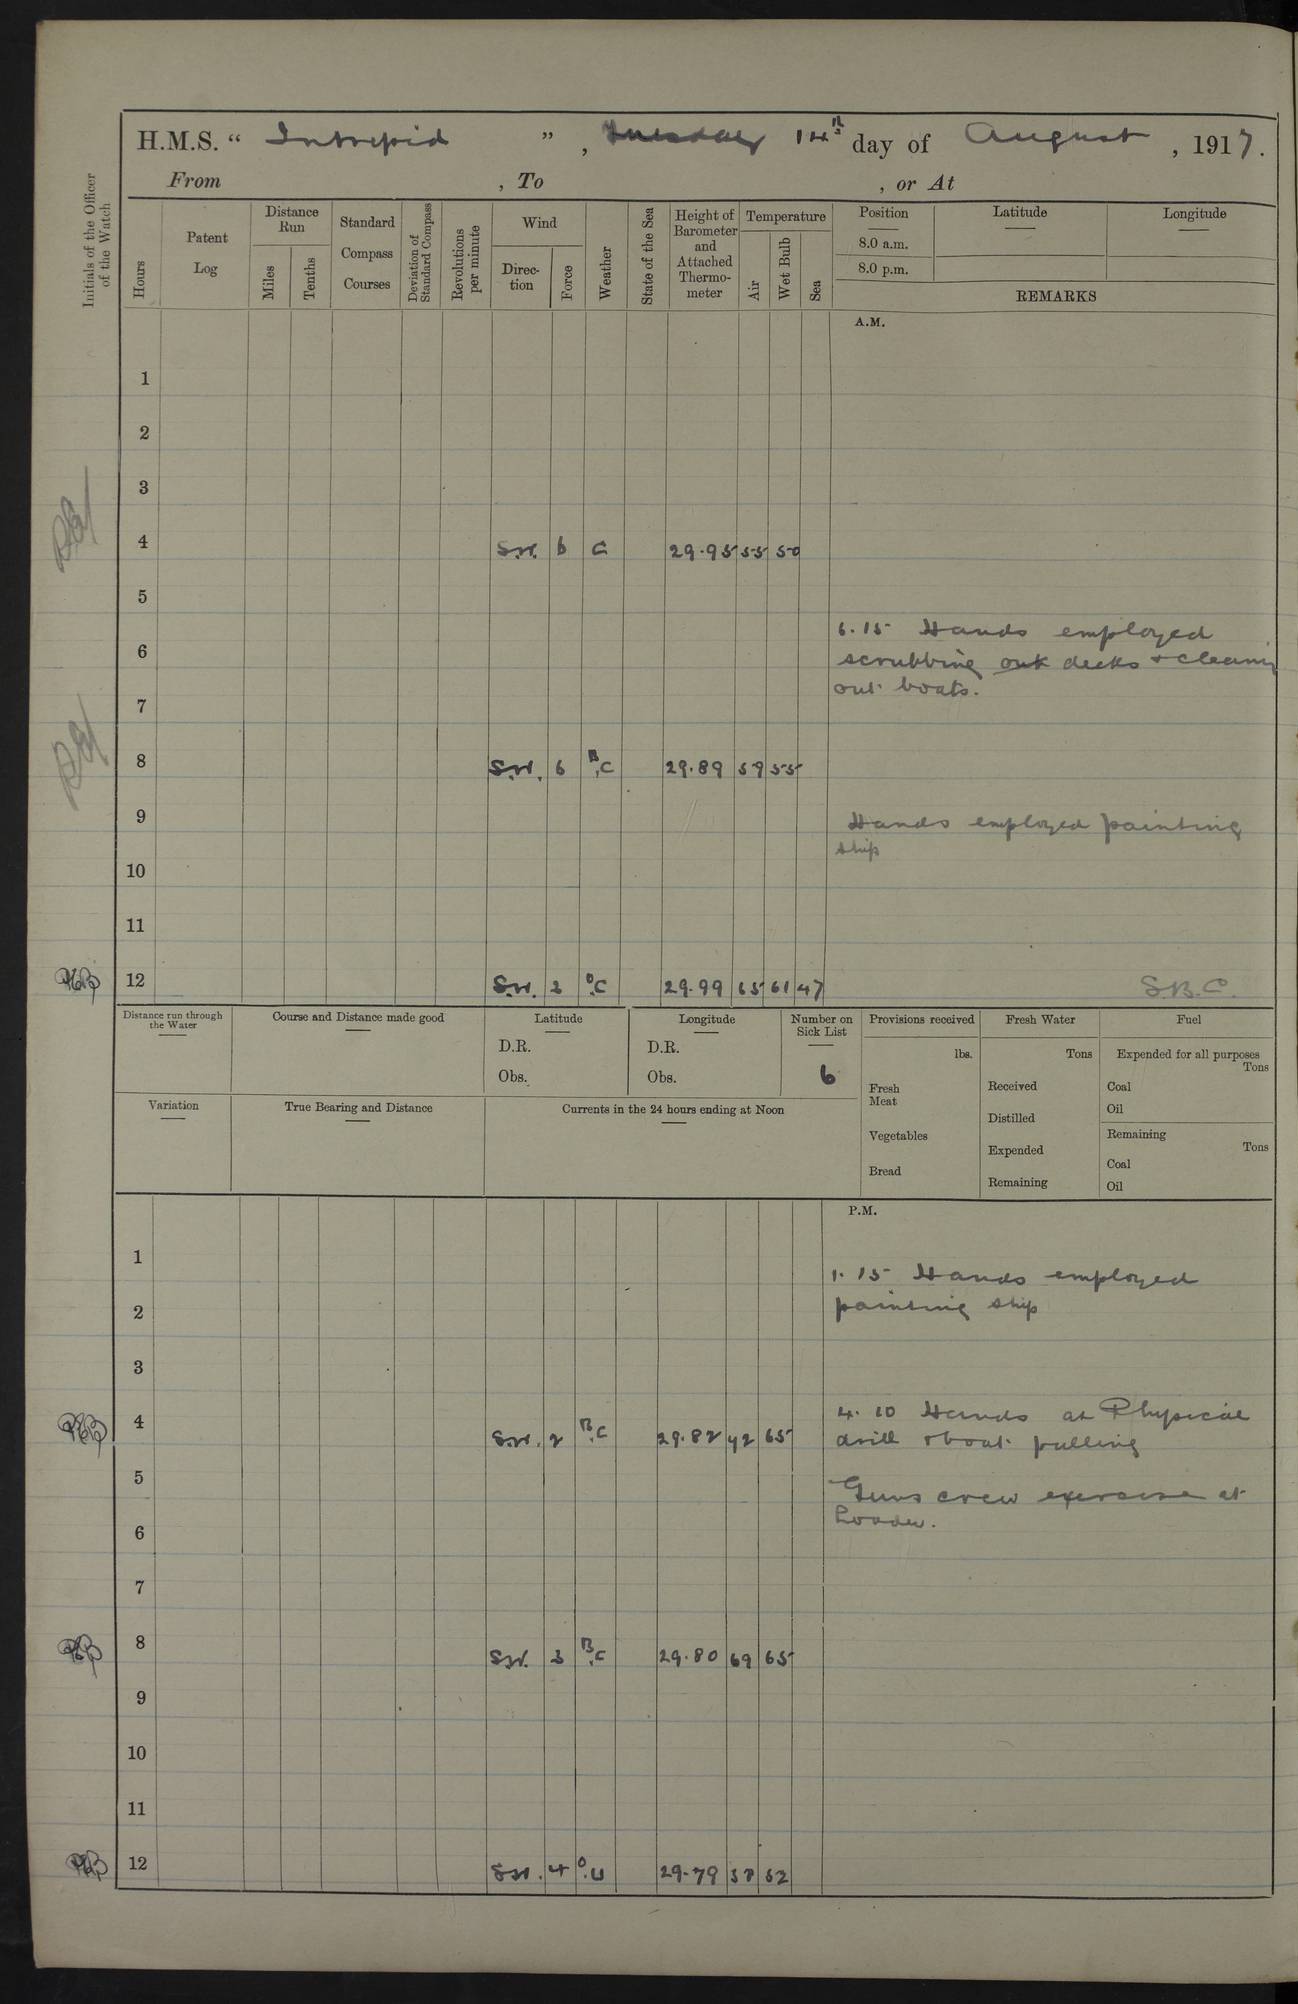 H.M.S. “ Intrepid ” , Tuesday 14th day of August , 1917.
From , To , or At
Initials of the Officer of the Watch
Hours
Patent Log
Distance Run
Miles
Tenths
Standard Compass Courses
Deviation of Standard Compass
Revolutions per minute
Wind
Direc-tion
Force
Weather
State of the Sea
Height of Barometer and Attached Thermo-meter
Temperature
Air
Wet Bulb
Sea
Position
Latitude
Longitude
8.0 a.m.
8.0 p.m.
REMARKS
A.M.
1
2
3
4 S.W. 6 C 29.95 55 50
5
6.15 Hands employed
6
scrubbing out decks + cleaning
out boats.
7
8 S.W. 6 B.C 29.89 59 55
9
Hands employed painting
ship
10
11
12 S.W. 3 O.C 29.99 65 61 47
S.B.C.
Distance run through the Water
Course and Distance made good
Latitude
D.R.
Obs.
Longitude
D.R.
Obs.
Number on Sick List
6
Provisions received
lbs.
Fresh Meat
Vegetables
Bread
Fresh Water
Tons
Received
Distilled
Expended
Remaining
Fuel
Expended for all purposes
Tons
Coal
Oil
Remaining
Tons
Coal
Oil
Variation
True Bearing and Distance
Currents in the 24 hours ending at Noon
P.M.
1
1.15 Hands employed
2
painting ship
3
4.10 Hands at Physical
4 S.W. 2 B.C 29.82 42 65
drill + boat pulling
5
Guns crew exercise at
Loader.
6
7
8 S.W. 3 B.C 29.80 69 65
9
10
11
12 S.W. 4 O.U 29.79 57 52